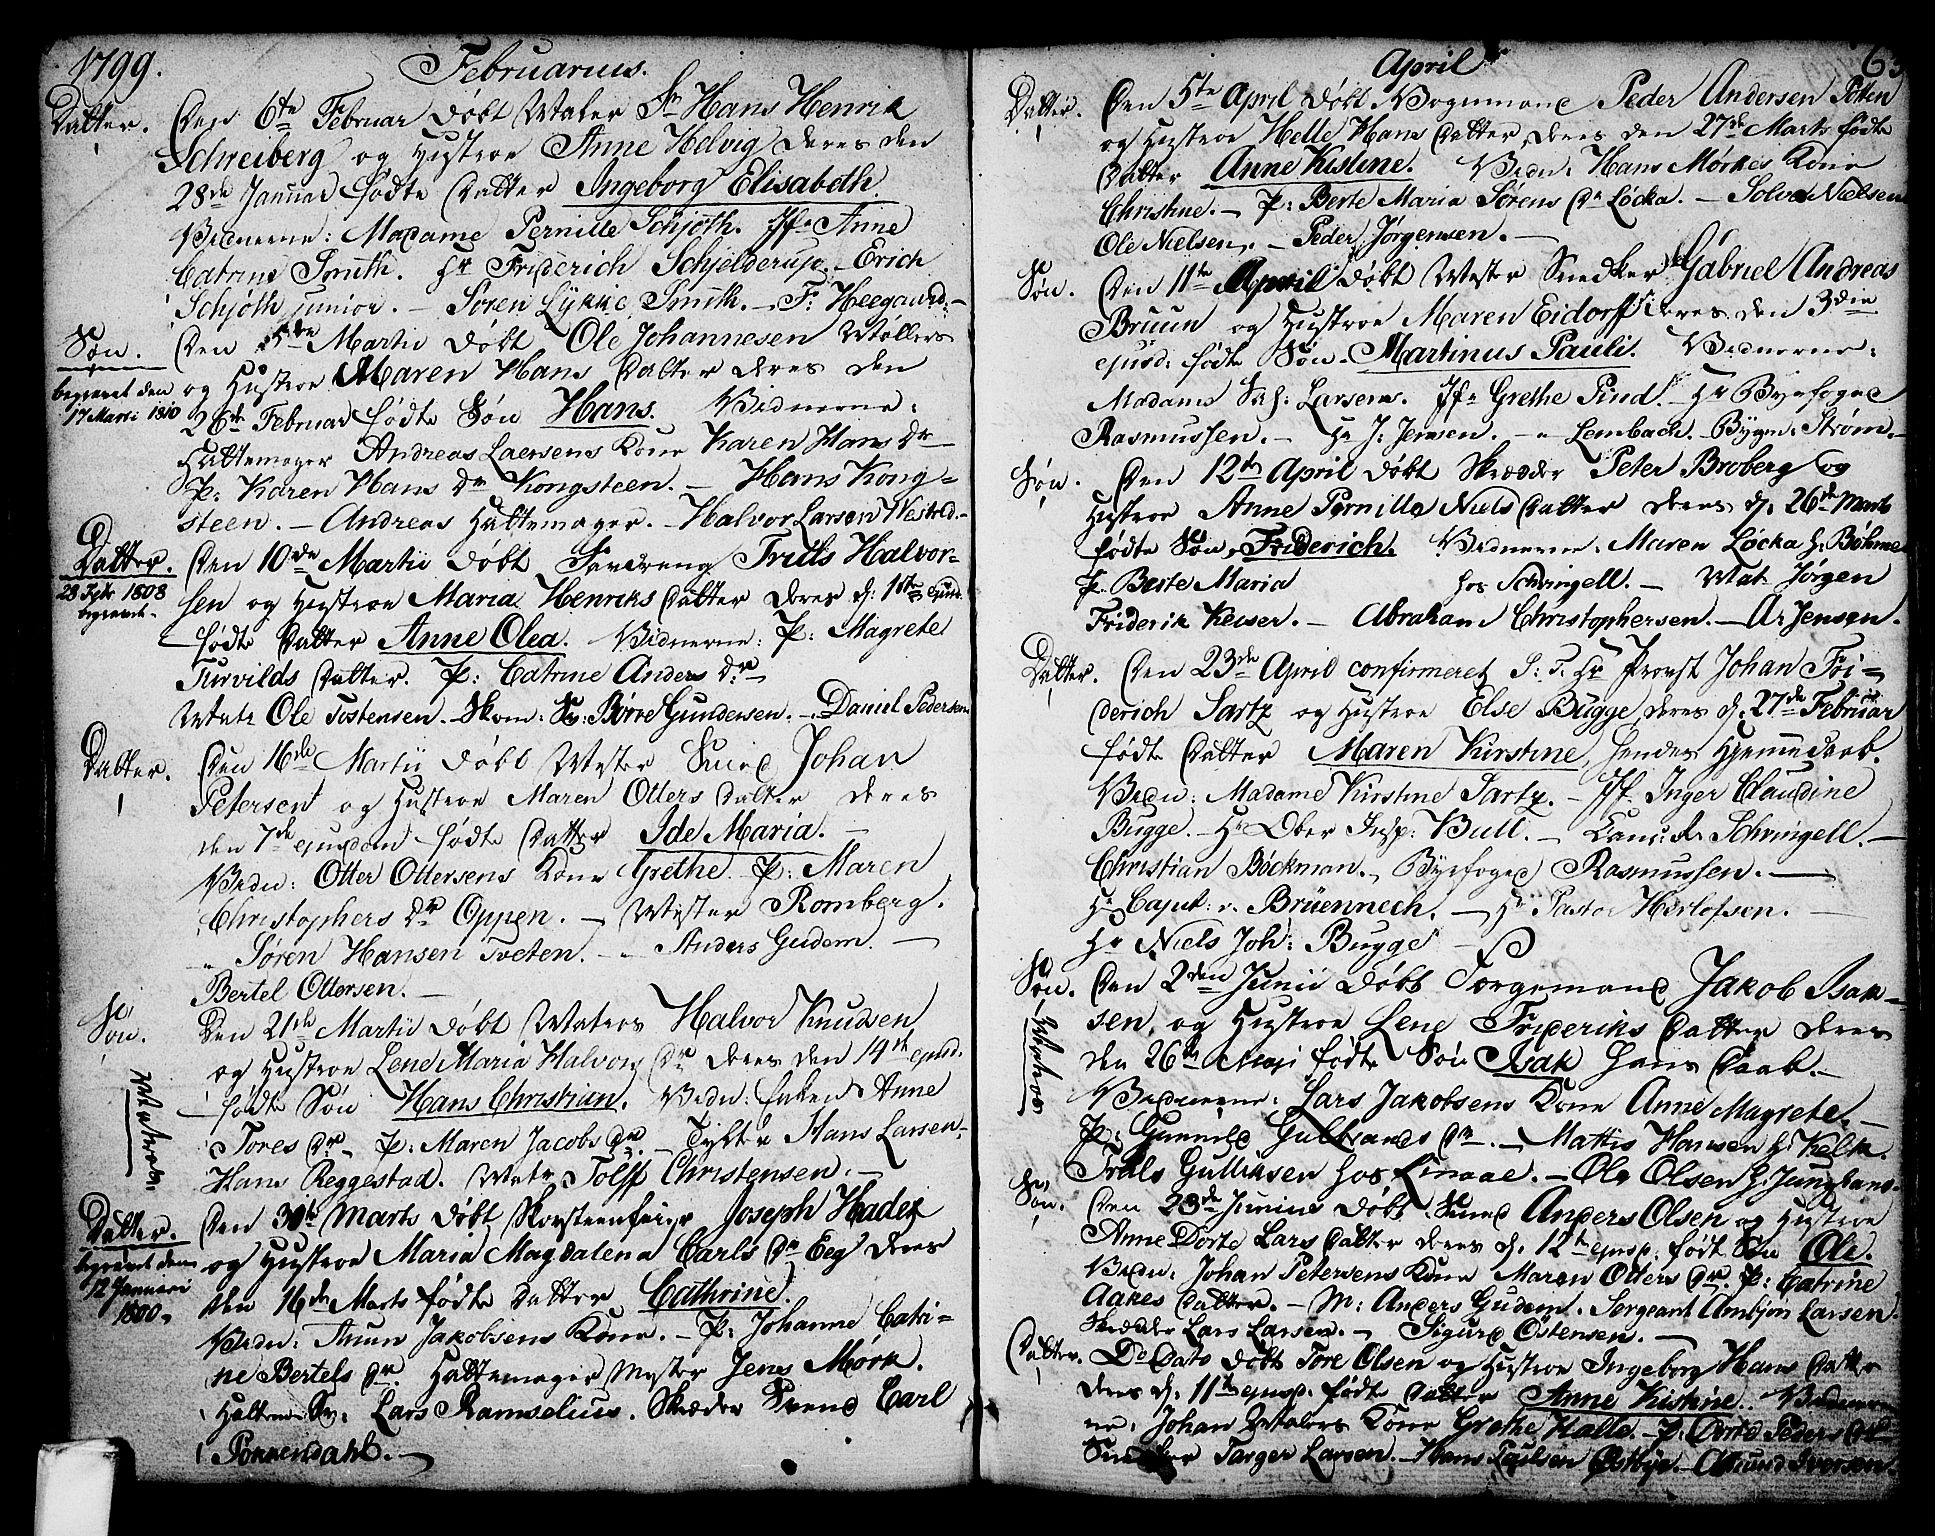 1799. Februarius.
Datter. Den 6te Februar döbt Mater Sr Hans Henrik
Schreiberg og Hustroe Anne Helvig deres den
28de Januar födte Datter Ingeborg Elisabeth.
Vidnerne: Madame Pernille Schjöth. Jfr Anne
Catrine Smith. Hr Friderich Schjelderup. Erich
Schjöth junior. — Sören Lykke Smith. — F: Heegaard. —
Søn. Den 5te Martii döbt Ole Johannesen Möllers
begravet den 17 Marti 1810
og Hustroe Maren Hans Datter deres den
26de Februar födte Søn Hans. Vidnerne:
Hattemager Andreas Laersens Kone Karen Hans Dr
P: Karen Hans Dr Kongsteen. — Hans Kong-
steen. — Andreas Hattemager. — Halvor Larsen Westad. —
Datter. Den 10de Martii döbt Feydreng Truls Halvor-
28 Febr 1808 begravet.
sen og Hustroe Maria Henriks Datter deres d. 1ste ejusd.
födte Datter Anne Olea. Vidnerne: P: Magrete
Turvilds Datter. P: Catrine Anders Dr
Matr Ole Tostensen. Skom: Sv: Börre Gundersen. — Daniel Pedersen
Datter. Den 16de Martii döbt Mester Smed Johan
Petersen og Hustroe Maren Otters Datter deres
den 7de ejusdem födte Datter Ide Maria. —
Vidn: Otter Ottersens Kone Grethe. P: Maren
Christophers Dr Oppen. — Mester Romberg.
" Sören Hansen Tveten. — " Anders Gudem. —
Bertel Ottersen. —
Søn. Den 21de Martii döbt Matros Halvor Knudsen
og Hustroe Lene Maria Halvors Dr deres den 14de ejusd.
Matros.
födte Søn Hans Christian. Vidn: Enken Anne
Tores Dr. P: Maren Jacobs Dr. — Tykter Hans Larsen,
Hans Reggestad. Matr Tolff Christensen. —
Datter. Den 30te Marts döbt Skorsteenfeier Joseph Hader
begravet den 12 Januari 1800.
og Hustroe Maria Magdalena Carls Dr Eeg deres
den 16de Marts födte Datter Cathrine.
Vidn: Anun Jakobsens Kone. — P: Johanne Catri-
ne Bertels Dr. Hattemager Mester Jens Mörk.
Hattem: Sv: Lars Ramselius. Skræder Svend Carl
Ponnendahl. —
April 63
Datter. Den 5te April döbt Vognmand Peder Andersen Poten
og Hustroe Helle Hans Datter deres den 27de Marts födte
Datter Anne Kistine. Vidn: Hans Mörkes Kone
Christine. — P: Berte Maria Sörens Dr Löcka. — Solve Nielsen
Ole Nielsen. — Peder Jörgensen. —
Søn. Den 11te April döbt Mester Snedker Gabriel Andreas
Bruun og Hustroe Maren Eidorff deres den 3die
ejusd: födte Søn Martinus Pauli. Vidnerne:
Madame Larsens. Jfr Grethe Pind. — Hr Byefoged
Rasmussen. — Hr J: Jensen. — " Lembach. — Bygm: Ström. —
Søn. Den 12te April döbt Skræder Peter Broberg og
Hustroe Anne Pernille Niels Datter deres d. 26de Marts
födte Søn Friderich. Vidnerne: Maren Löcka h: Böhme
P. Berte Maria hos Schringell. — Mat: Jörgen
Friderik Keiser. — Abraham Christophersen. — Ar Jensen.
Datter. Den 23de April confirmeret S: T: Hr Provst Johan Fri-
derich Sartz og Hustroe Else Bugge deres d. 27de Februar
födte Datter Maren Kirstine, hendes Hjemmedaab.
Vidn: Madame Kirstine Sartz. — Jfr Inger Claudine
Bugge. — Hr Ober Insp: Bull. — Canc: R: Schringell. —
Christian Böckman. Byefoged Rasmussen. —
Hr Capit: v. Brüennech. — Hr Pastor Herlofsen. —
Hr Niels Joh: Bugge —
Søn. Den 2den Junii döbt Borgemand Jakob Isak-
Matros
sen, og Hustroe Lene Frideriks Datter deres
den 26de Maji födte Søn Isak hans Daab. —
Vidnerne: Lars Jakobsens Kone Anne Magrete. —
P: Gunnild Gulbrands Dr. — Mattis Hansen h: Kelk.
Trals Gulliksen hos Linaae. — Ole Olsen h: Jungbans.
Søn. Den 23de Junius döbt Smed Anders Olsen og Hustroe
Anne Dorte Lars Datter deres d. 12te ejusd: födt Søn Ole.
Vidn: Johan Petersens Kone Maren Otters Dr. P: Catrine
Aakes Datter. — M: Anders Gudem. Sergeant Arnbjørn Larsen.
Skræder Lars Larsen. — Sigurd Östensen. —
Datter. Do Dato döbt Tore Olsen og Hustroe Ingeborg Hans Datter
deres d. 11te ejusd: födte Datter Anne Kistine. Vidner-
ne: Johan Zetalers Kone Grethe Halle. P: Dorte Peders Dr
Snedker Targer Larsen. — Hans Paulsen Östbye. — Amund Iversen.